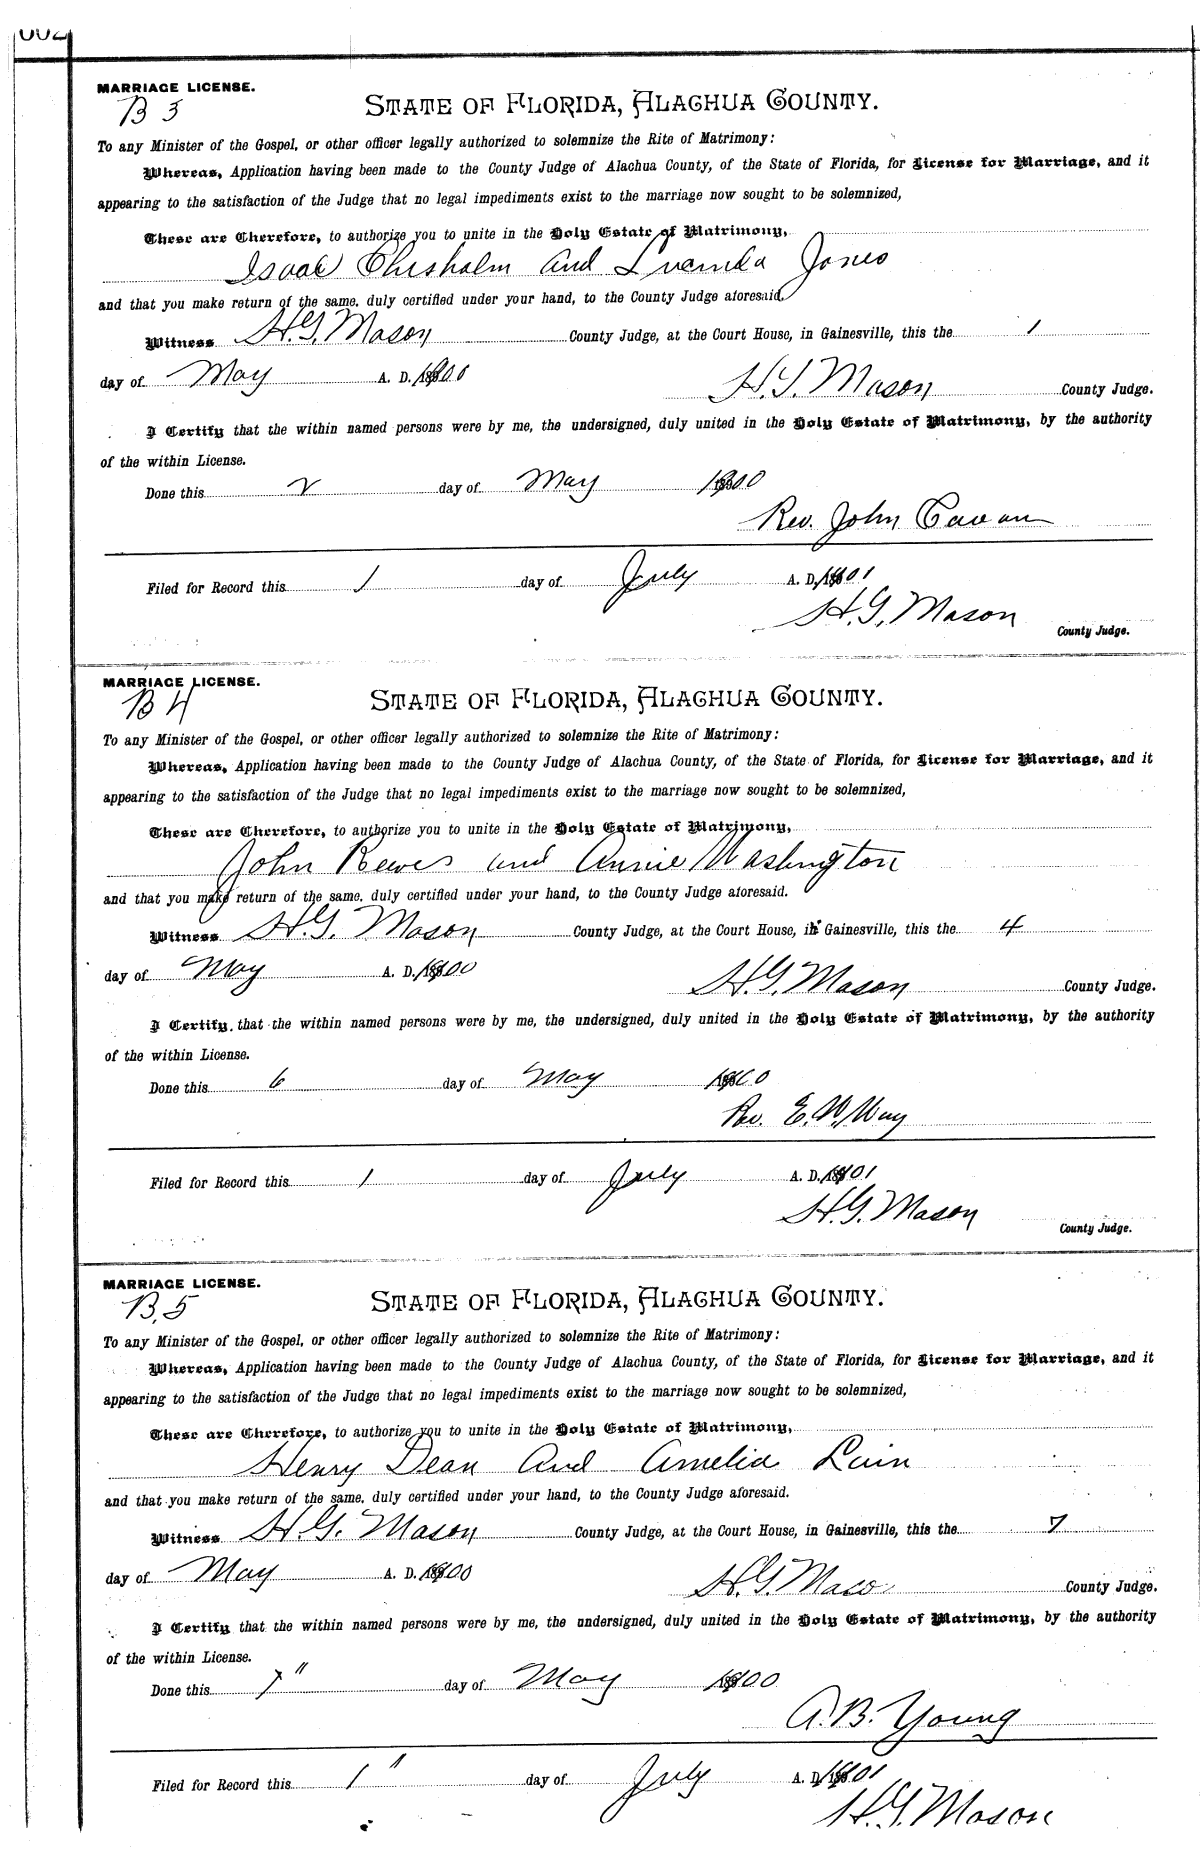 MARRIAGE LICENSE.
B 3
STATE OF FLORIDA, ALACHUA COUNTY.
To any Minister of the Gospel, or other officer legally authorized to solemnize the Rite of Matrimony:
Whereas, Application having been made to the County Judge of Alachua County, of the State of Florida, for License for Marriage, and it
appearing to the satisfaction of the Judge that no legal impediments exist to the marriage now sought to be solemnized,
These are Therefore, to authorize you to unite in the Holy Estate of Matrimony,
Isaac Chisholm and Lucinda Jones
and that you make return of the same, duly certified under your hand, to the County Judge aforesaid.
Witness H.G. Mason County Judge, at the Court House, in Gainesville, this the 1
day of May A. D. 1900 H.G. Mason County Judge.
I Certify that the within named persons were by me, the undersigned, duly united in the Holy Estate of Matrimony, by the authority
of the within License.
Done this 2 day of May 1900
Rev. John
Filed for Record this 1 day of July A. D. 1901
H.G. Mason
County Judge.
MARRIAGE LICENSE.
B 4
STATE OF FLORIDA, ALACHUA COUNTY.
To any Minister of the Gospel, or other officer legally authorized to solemnize the Rite of Matrimony:
Whereas, Application having been made to the County Judge of Alachua County, of the State of Florida, for License for Marriage, and it
appearing to the satisfaction of the Judge that no legal impediments exist to the marriage now sought to be solemnized,
These are Therefore, to authorize you to unite in the Holy Estate of Matrimony,
John Reeves and Annie Washington
and that you make return of the same, duly certified under your hand, to the County Judge aforesaid.
Witness H.G. Mason County Judge, at the Court House, in Gainesville, this the 4
day of May A. D. 1900 H.G. Mason County Judge.
I Certify, that the within named persons were by me, the undersigned, duly united in the Holy Estate of Matrimony, by the authority
of the within License.
Done this 6 day of May 1900
Rev. E.W. Way
Filed for Record this 1 day of July A. D. 1901
H.G. Mason
County Judge.
MARRIAGE LICENSE.
B, 5
STATE OF FLORIDA, ALACHUA COUNTY.
To any Minister of the Gospel, or other officer legally authorized to solemnize the Rite of Matrimony:
Whereas, Application having been made to the County Judge of Alachua County, of the State of Florida, for License for Marriage, and it
appearing to the satisfaction of the Judge that no legal impediments exist to the marriage now sought to be solemnized,
These are Therefore, to authorize you to unite in the Holy Estate of Matrimony,
Henry Dean and Amelia
and that you make return of the same, duly certified under your hand, to the County Judge aforesaid.
Witness H.G. Mason County Judge, at the Court House, in Gainesville, this the 7
day of May A. D. 1900 H.G. Mason County Judge.
I Certify that the within named persons were by me, the undersigned, duly united in the Holy Estate of Matrimony, by the authority
of the within License.
Done this 7" day of May 1900
A.B. Young
Filed for Record this 1" day of July A. D. 1901
H.G. Mason